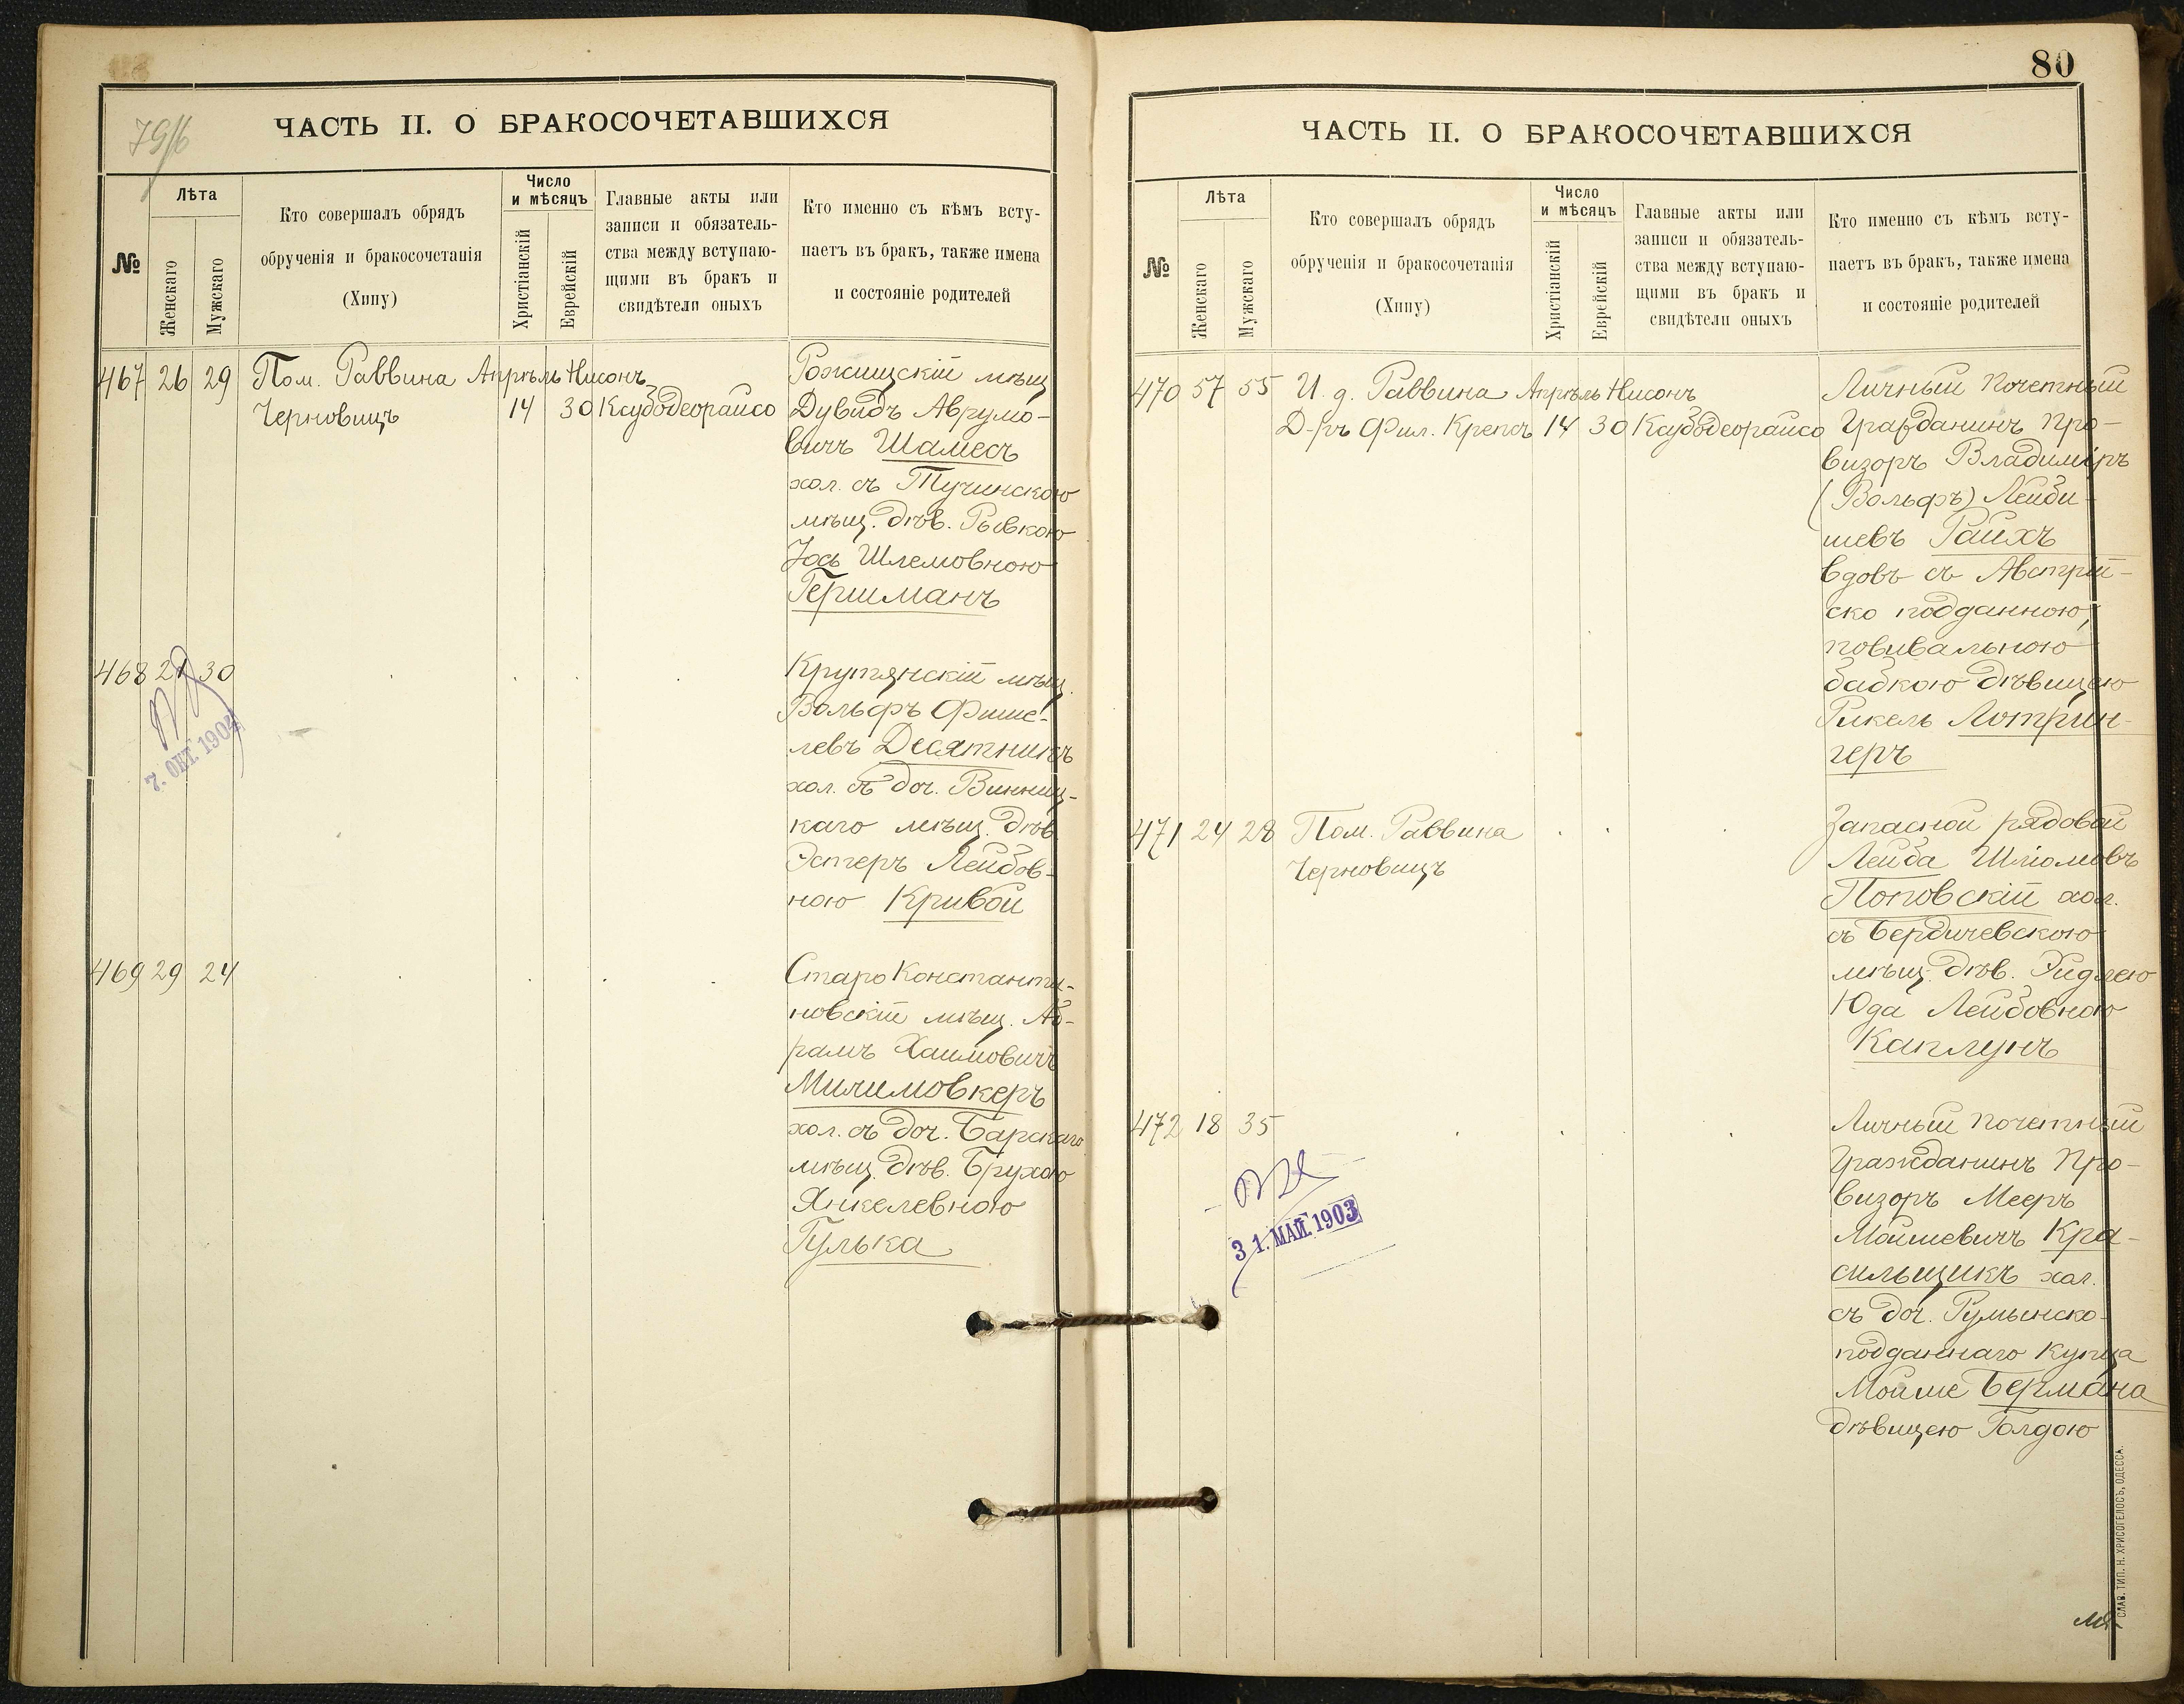 79/6
ЧАСТЬ II. О БРАКОСОЧЕТАВШИХСЯ
№
Лѣта
Женскаго
Мужскаго
Кто совершалъ обрядъ
обрученія и бракосочетанія
(Хипу)
Число
и мѣсяцъ
Христіанскій
Еврейскій
Главные акты или
записи и обязатель-
ства между вступаю-
щими въ бракъ и
свидѣтели оныхъ
Кто именно съ кѣмъ всту-
паетъ въ бракъ, также имена
и состояніе родителей
467 26 29 Пом. Раввина Апрѣль Нисонъ
Черновицъ 14 30 Ксубодеорайсо
Рожищскій мѣщ
Дувидъ Аврумо-
вичъ Шамесъ
хол. съ Тучинскою
мѣщ. дѣв. Рывкою
Хось Шлемовною
Гершманъ
468 21 30
7. ОКТ. 1904
Крутянскій мѣщ.
Вольфъ Фише-
левъ Десятникъ
хол. съ доч. Винниц-
каго мѣщ. дѣв
Эстеръ Лейбов-
ною Кривой
469 29 24
Старо Константи-
новскій мѣщ. Аб-
рамъ Хаимовичъ
Милимовкеръ
хол. съ доч. Барскаго
мѣщ. дѣв. Брухою
Янкелевною
Гулька
80
ЧАСТЬ II. О БРАКОСОЧЕТАВШИХСЯ
№
Лѣта
Женскаго
Мужскаго
Кто совершалъ обрядъ
обрученія и бракосочетанія
(Хипу)
Число
и мѣсяцъ
Христіанскій
Еврейскій
Главные акты или
записи и обязатель-
ства между вступаю-
щими въ бракъ и
свидѣтели оныхъ
Кто именно съ кѣмъ всту-
паетъ въ бракъ, также имена
и состояніе родителей
470 57 55 И. д. Раввина Апрѣль Нисонъ
Д-ръ Фил. Крепсъ 14 30 Ксубодеорайсо
Личный почетный
Гражданинъ Про-
визоръ Владиміръ
(Вольфъ) Лейби-
шевъ Райхъ
вдовъ съ Австрій-
ско подданною,
повивальною
бабкою дѣвицею
Рикель Лотрин-
геръ
471 24 28 Пом. Раввина
Черновицъ
Запасной рядовой
Лейба Шліомовъ
Поповскій хол.
съ Бердичевскою
мѣщ. дѣв. Эидлею
Юда Лейбовною
Каплунъ
472 18 35
31. МАЙ. 1903
Личный почетный
Гражданинъ Про-
визоръ Мееръ
Мошиевичъ Кра-
сильщикъ хол.
съ доч. Румынско-
подданнаго купца
Мойше Бермана
дѣвицею Голдою
СЛАВ. ТИП. Н. ХРИСОГЕЛОСЪ, ОДЕССА.